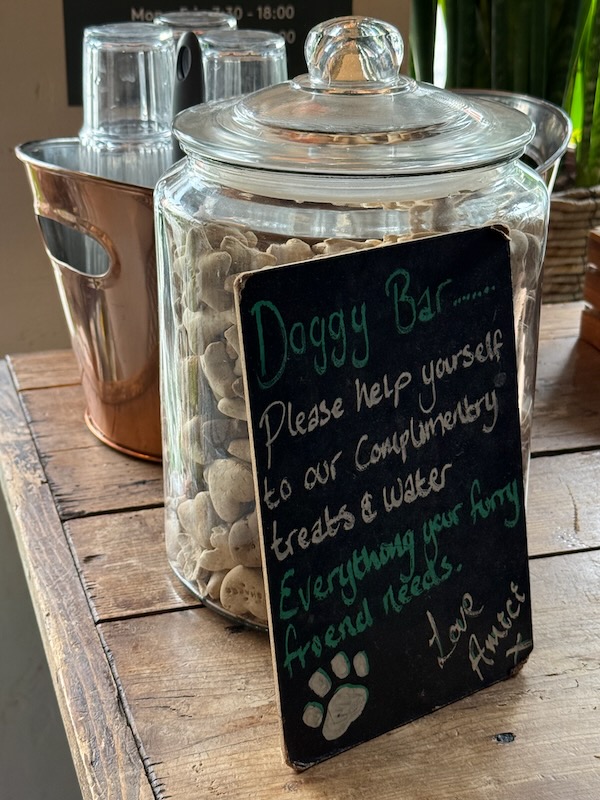 Mon - Fri 7:30 - 18:00
Doggy Bar.......
Please help yourself
to our Complimentry
treats & Water
Everything your furry
friend needs.
Love
Amici
x